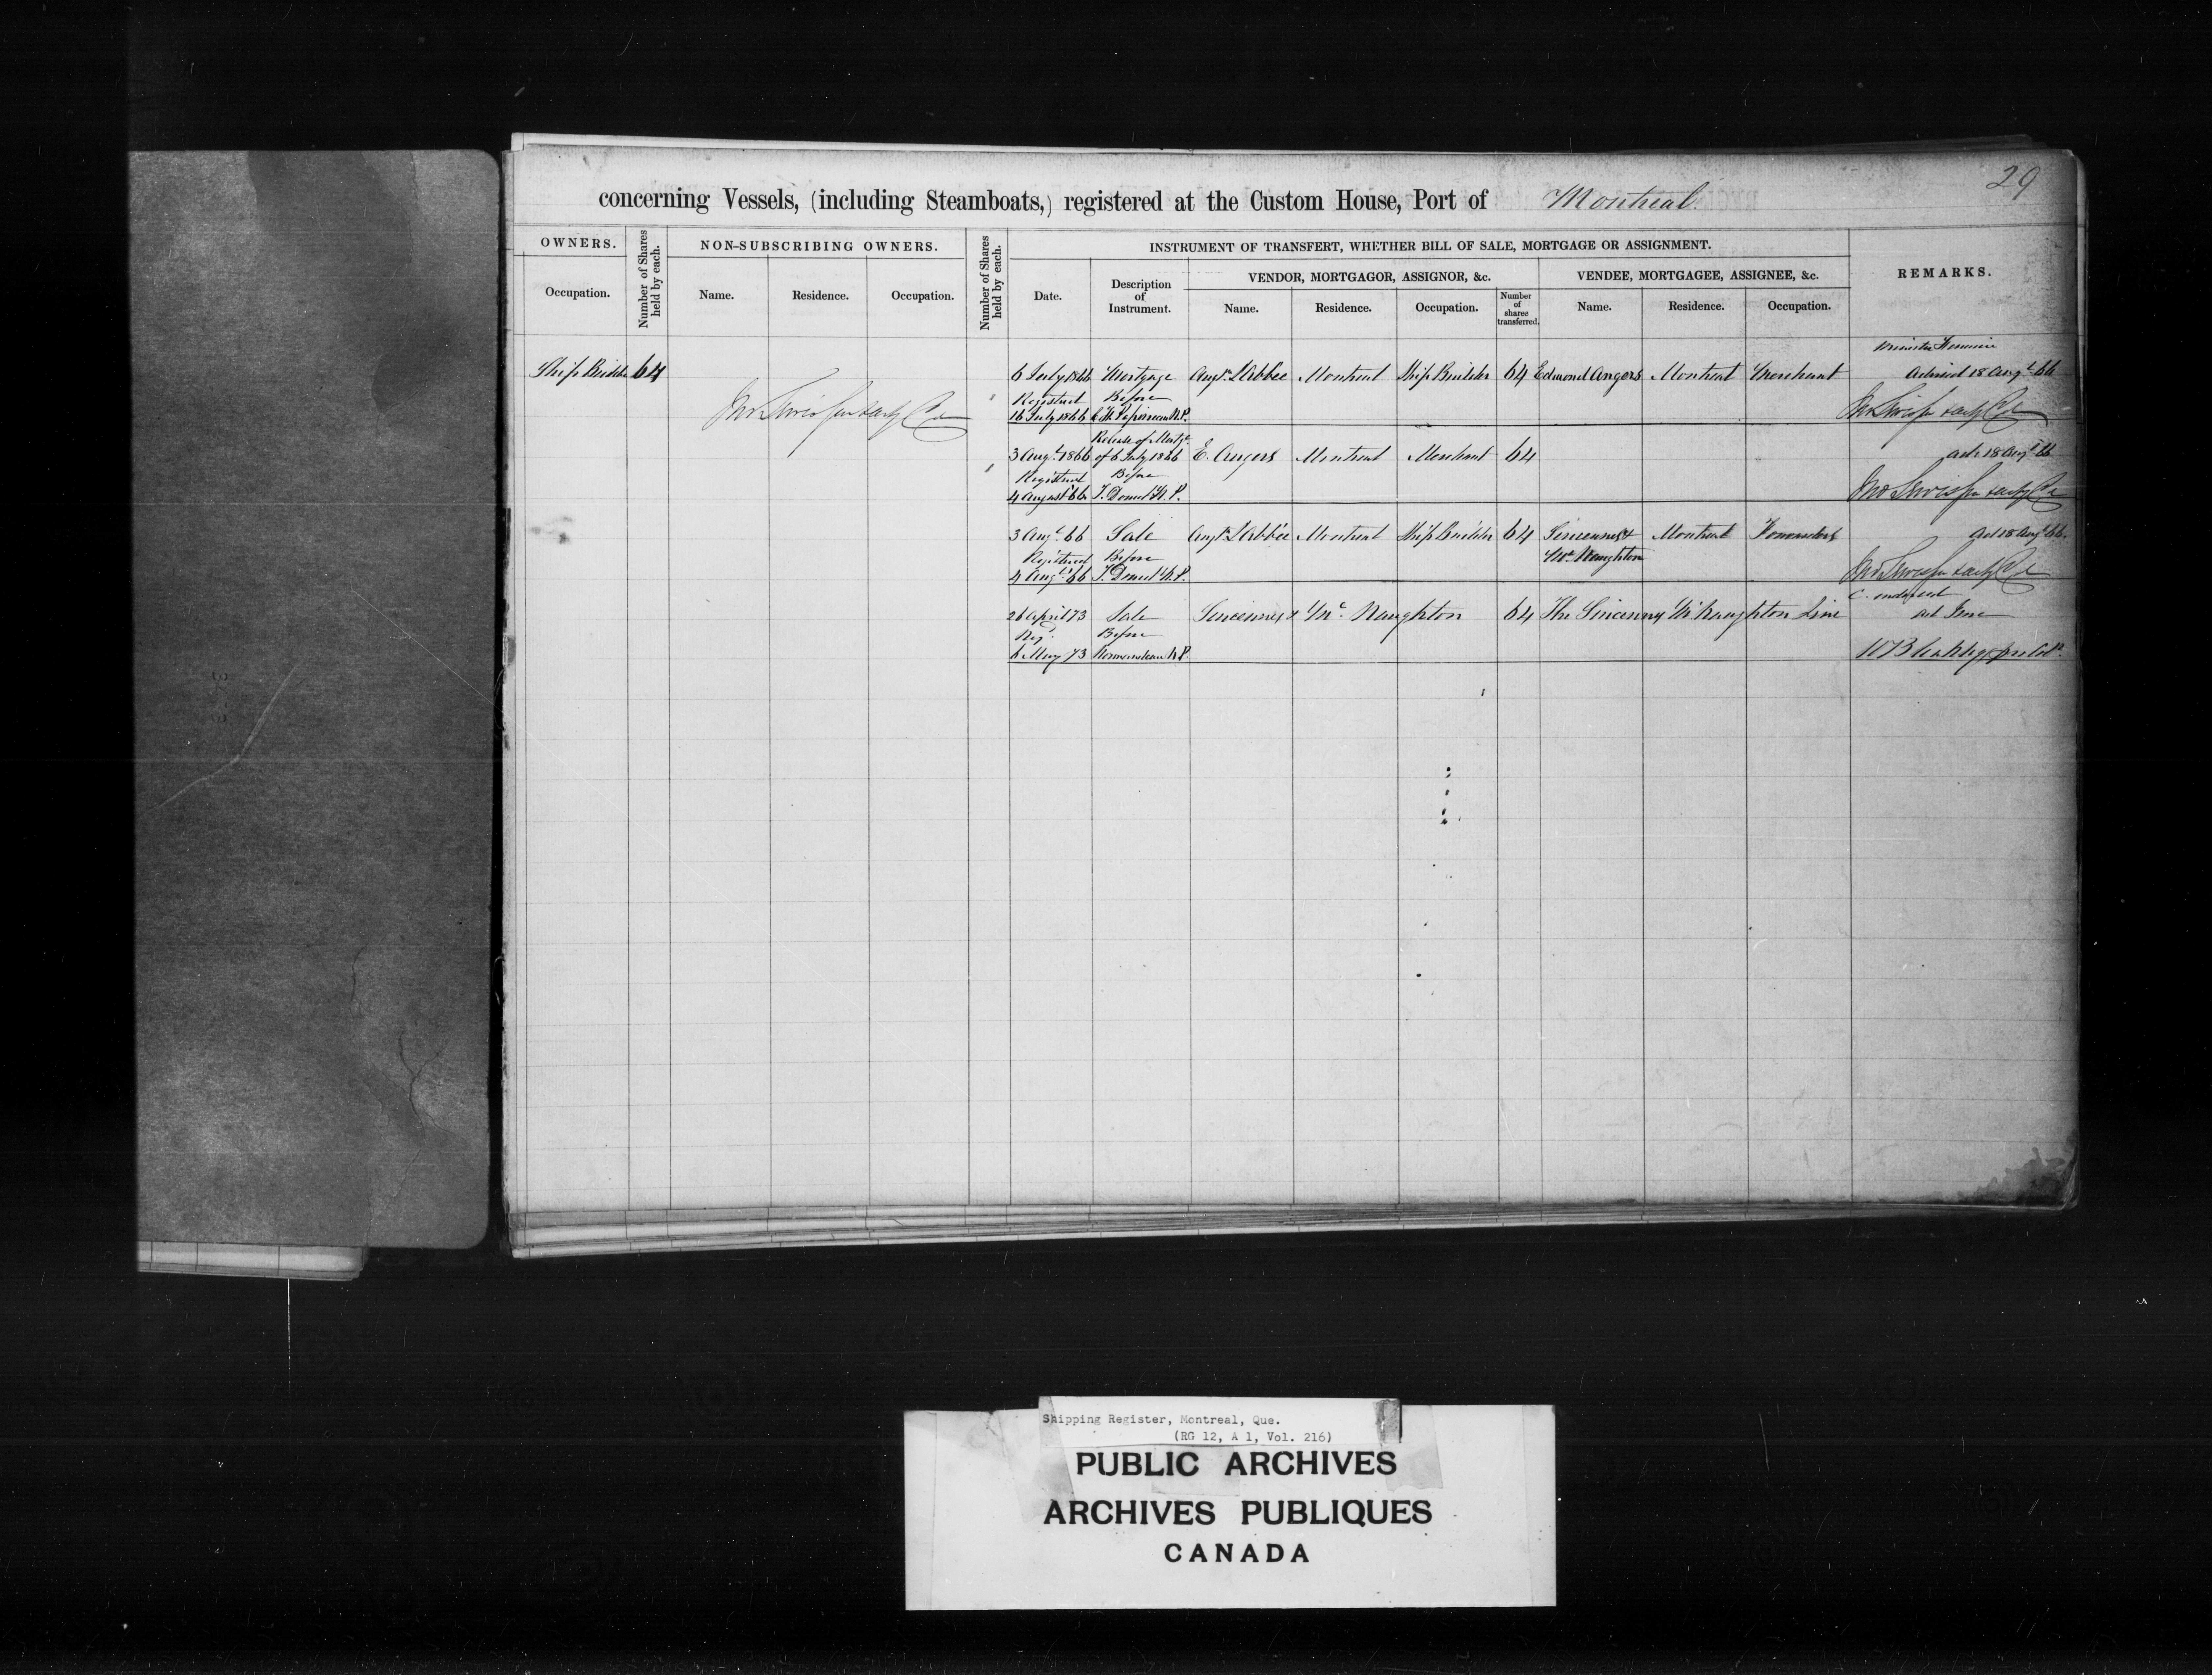 29
concerning Vessels, (including Steamboats,) registered at the Custom House, Port of Montreal.
OWNERS.
Occupation.
Number of Shares held by each.
NON-SUBSCRIBING OWNERS.
Name.
Residence.
Occupation.
Number of Shares held by each.
INSTRUMENT OF TRANSFERT, WHETHER BILL OF SALE, MORTGAGE OR ASSIGNMENT.
Date.
Description
of
Instrument.
VENDOR, MORTGAGOR, ASSIGNOR, &c.
Name.
Residence.
Occupation.
Number
of
shares
transferred.
VENDEE, MORTGAGEE, ASSIGNEE, &c.
Name.
Residence.
Occupation.
REMARKS.
Ship Builder 64
6 July 1866 Mortgage Augn. L'Abbée Montreal Ship Builder 64 Edmond Angers Montreal Merchant
Advised 18 Augt. 66
Registered Before
16 July 1866
N.P.
Release of Mortge.
3 Augt. 1866 of 6 July 1866 E. Angers Montreal Merchant 64
adv. 18 Augt. 66
Registered Before
4 August 66 T. Doucet N.P.
3 Augt. 66 Sale Augn. L'Abbée Montreal Ship Builder 64 Sincennes & Montreal Forwarders
ad 18 Augt. 66
Registered Before Mc. Naughton
4 Augt. 66 T. Doucet N.P.
C. endorsed
26 April 73 Sale Sincennes & Mc. Naughton 64 The Sincennes McNaughton Line
Reg. Before
6 May 73 Normandeau N.P.
Shipping Register, Montreal, Que.
(RG 12, A 1, Vol. 216)
PUBLIC ARCHIVES
ARCHIVES PUBLIQUES
CANADA